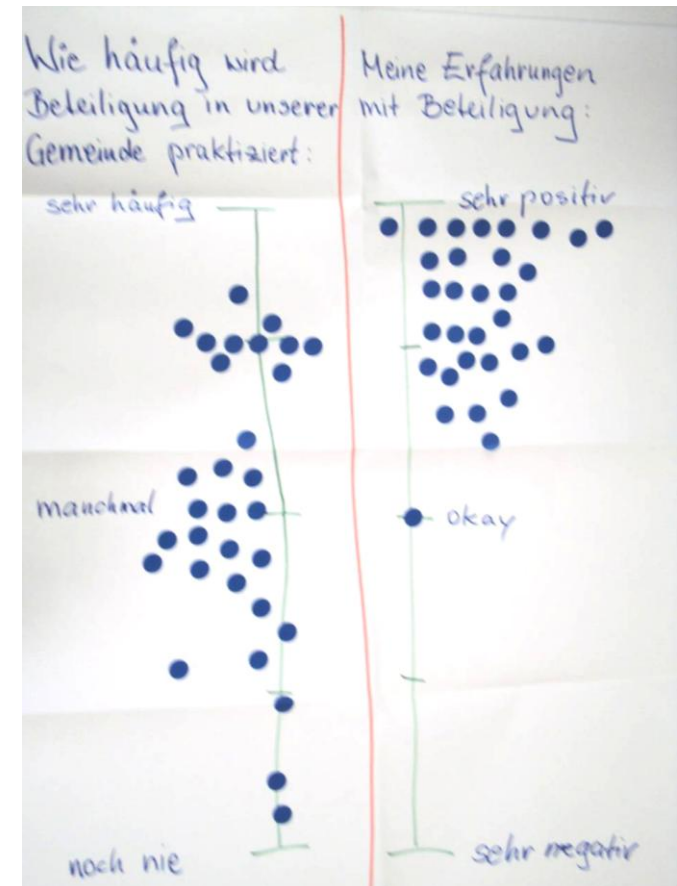 Wie häufig wird
Beteiligung in unserer
Gemeinde praktiziert:
sehr häufig
manchmal
noch nie
Meine Erfahrungen
mit Beteiligung:
sehr positiv
okay
sehr negativ